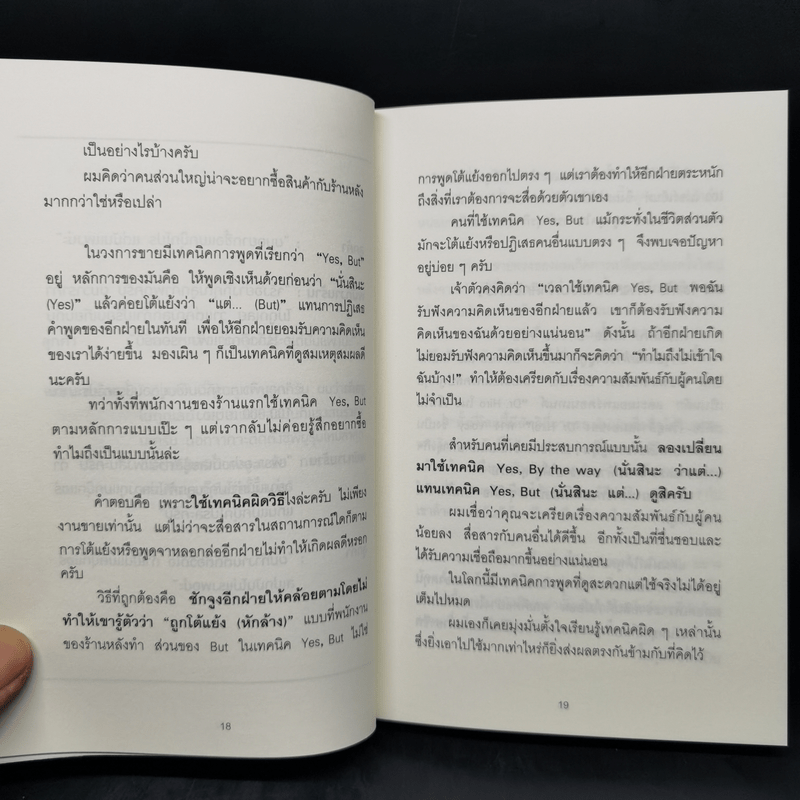 เป็นอย่างไรบ้างครับ
ผมคิดว่าคนส่วนใหญ่น่าจะอยากซื้อสินค้ากับร้านหลัง
มากกว่าใช่หรือเปล่า
ในวงการขายมีเทคนิคการพูดที่เรียกว่า “Yes, But”
อยู่ หลักการของมันคือ ให้พูดเชิงเห็นด้วยก่อนว่า “นั่นสินะ
(Yes)” แล้วค่อยโต้แย้งว่า “แต่... (But)” แทนการปฏิเสธ
คำพูดของอีกฝ่ายในทันที เพื่อให้อีกฝ่ายยอมรับความคิดเห็น
ของเราได้ง่ายขึ้น มองเผิน ๆ ก็เป็นเทคนิคที่ดูสมเหตุสมผลดี
นะครับ
ทว่าทั้งที่พนักงานของร้านแรกใช้เทคนิค Yes, But
ตามหลักการแบบเป๊ะ ๆ แต่เรากลับไม่ค่อยรู้สึกอยากซื้อ
ทำไมถึงเป็นแบบนั้นล่ะ
คำตอบคือ เพราะใช้เทคนิคผิดวิธีไงล่ะครับ ไม่เพียง
งานขายเท่านั้น แต่ไม่ว่าจะสื่อสารในสถานการณ์ใดก็ตาม
การโต้แย้งหรือพูดจาหลอกล่ออีกฝ่ายไม่ทำให้เกิดผลดีหรอก
ครับ
วิธีที่ถูกต้องคือ ชักจูงอีกฝ่ายให้คล้อยตามโดยไม่
ทำให้เขารู้ตัวว่า “ถูกโต้แย้ง (หักล้าง)” แบบที่พนักงาน
ของร้านหลังทำ ส่วนของ But ในเทคนิค Yes, But ไม่ใช่
18
การพูดโต้แย้งออกไปตรง ๆ แต่เราต้องทำให้อีกฝ่ายตระหนัก
ถึงสิ่งที่เราต้องการจะสื่อด้วยตัวเขาเอง
คนที่ใช้เทคนิค Yes, But แม้กระทั่งในชีวิตส่วนตัว
มักจะโต้แย้งหรือปฏิเสธคนอื่นแบบตรง ๆ จึงพบเจอปัญหา
อยู่บ่อย ๆ ครับ
เจ้าตัวคงคิดว่า “เวลาใช้เทคนิค Yes, But พอฉัน
รับฟังความคิดเห็นของอีกฝ่ายแล้ว เขาก็ต้องรับฟังความ
คิดเห็นของฉันด้วยอย่างแน่นอน” ดังนั้น ถ้าอีกฝ่ายเกิด
ไม่ยอมรับฟังความคิดเห็นขึ้นมาก็จะคิดว่า “ทำไมถึงไม่เข้าใจ
ฉันบ้าง!” ทำให้ต้องเครียดกับเรื่องความสัมพันธ์กับผู้คนโดย
ไม่จำเป็น
สำหรับคนที่เคยมีประสบการณ์แบบนั้น ลองเปลี่ยน
มาใช้เทคนิค Yes, By the way (นั่นสินะ ว่าแต่...)
แทนเทคนิค Yes, But (นั่นสินะ แต่...) ดูสิครับ
ผมเชื่อว่าคุณจะเครียดเรื่องความสัมพันธ์กับผู้คน
น้อยลง สื่อสารกับคนอื่นได้ดีขึ้น อีกทั้งเป็นที่ชื่นชอบและ
ได้รับความเชื่อถือมากขึ้นอย่างแน่นอน
ในโลกนี้มีเทคนิคการพูดที่ดูสะดวกแต่ใช้จริงไม่ได้อยู่
เต็มไปหมด
ผมเองก็เคยมุ่งมั่นตั้งใจเรียนรู้เทคนิคผิด ๆ เหล่านั้น
ซึ่งยิ่งเอาไปใช้มากเท่าไหร่ก็ยิ่งส่งผลตรงกันข้ามกับที่คิดไว้
19